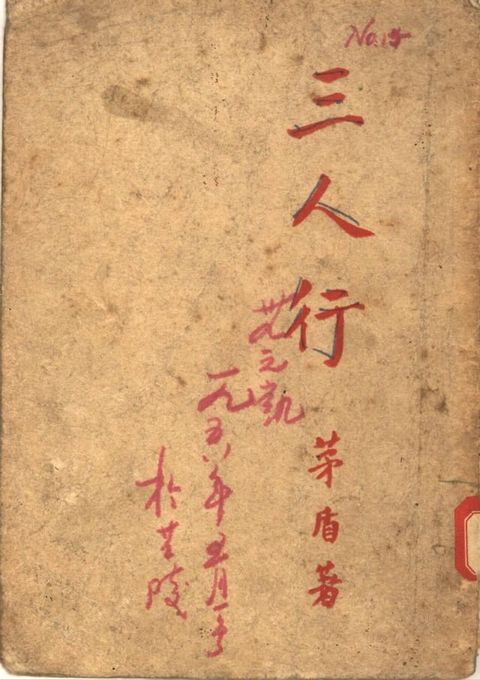 No.15
三人行
茅盾著
元凯
一九五八年五月一号
於